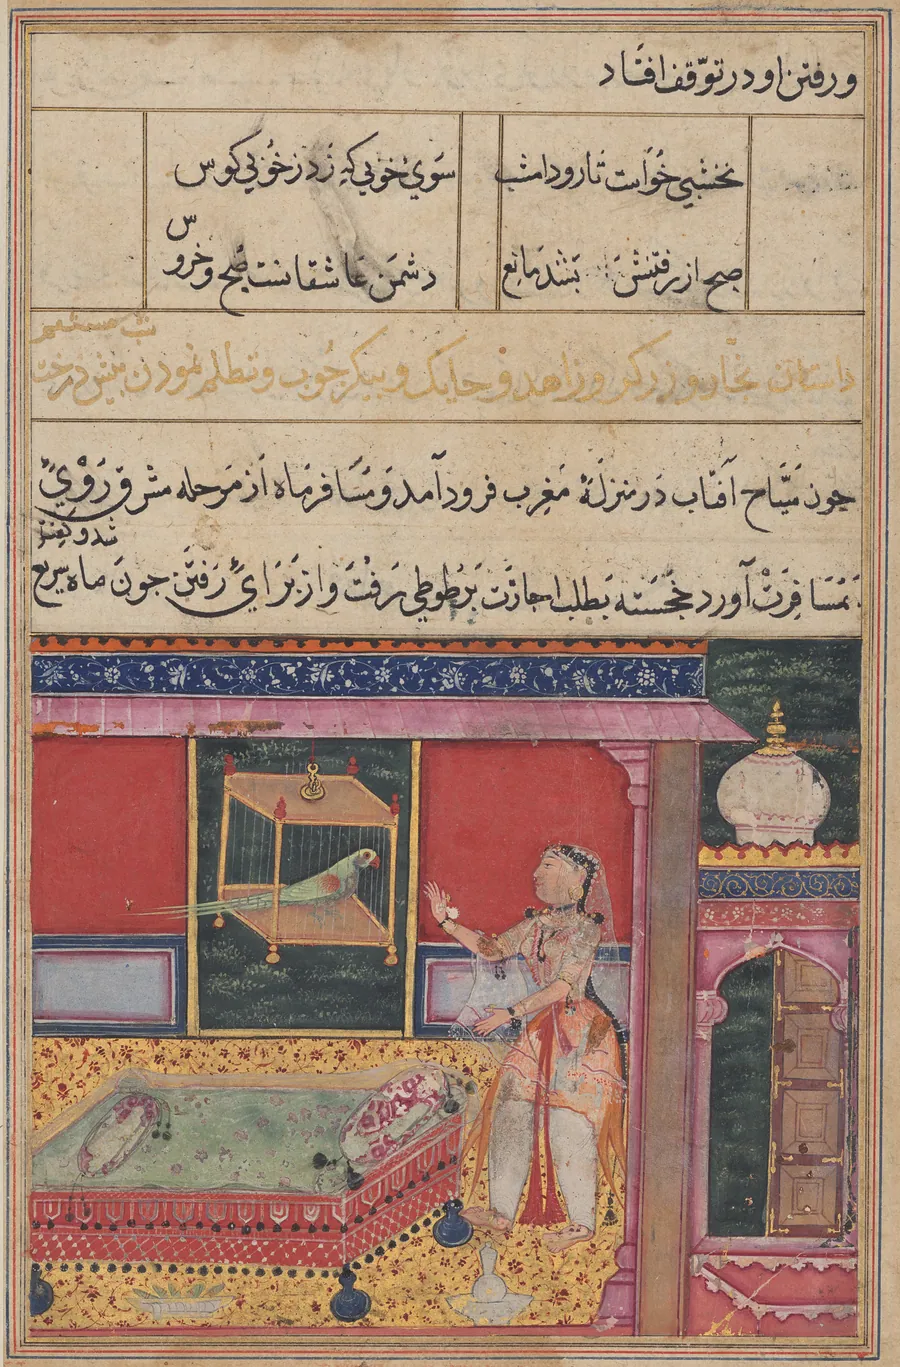 و رفتن او در توقف افتاد
نخشبی خواست تا رود امشب سوی خوبی که زد ز خوبی کوس
صبح از رفتنش بشد مانع دشمن عاشقانست صبح و خروس
داستان نجار و زرکر و زاهد و حایک و پیکر چوب و تظلم نمودن پیش درخت
چون سیاح آفتاب در منزله مغرب فرود آمد و مسافر ماه از مرحله مشرق روی
بمسافرت آورد خجسته بطلب اجازت بر طوطی رفت و از برای رفتن چون ماه سریع